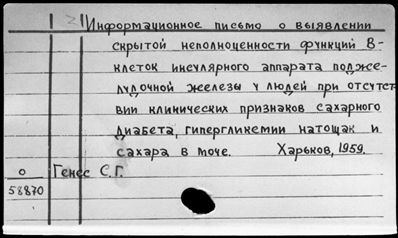 Информационное письмо о выявлении
скрытой неполноценности функций В-
клеток инсулярного аппарата поджe-
лудочной железы у людей при отсутст
вии клинических признаков сахарного
диабета, гипергликемии натощак и
сахара в моче. Харьков, 1959.
О Генес С.Г.
58870